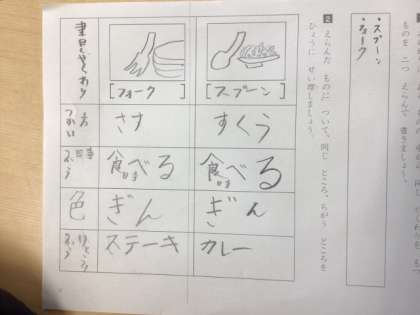 ・スプーン
・フォーク
ものを 二つ えらんで 書きましょう。
2 えらんだ ものに ついて、同じ ところ、ちがう ところを
ひょうに せい理しましょう。
[フォーク]
[スプーン]
つかい方
さす
すくう
食べる
食べる
色
ぎん
ぎん
ステーキ
カレー